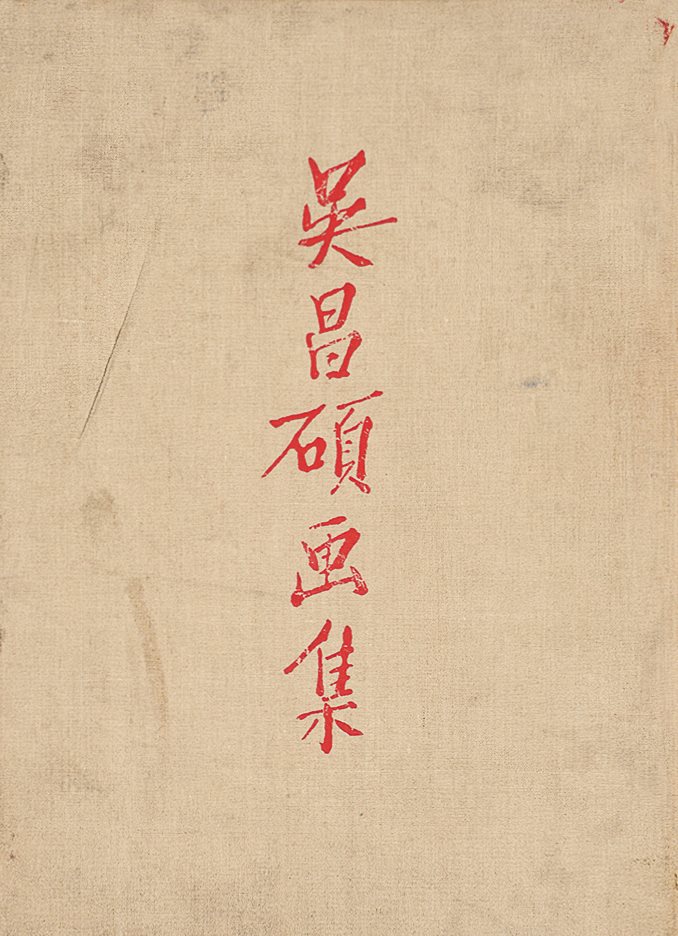 吴昌碩画集